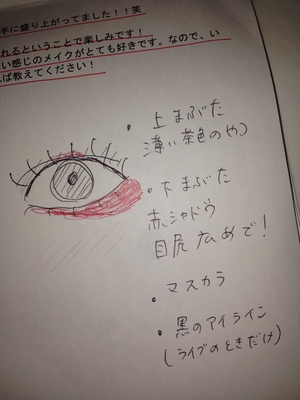 手に盛り上がってました！！笑
れるということで楽しみです！
い感じのメイクがとても好きです。なので、い
ば教えてください！
・上まぶた
薄い茶色のやつ
・下まぶた
赤シャドウ
目尻広めで！
・マスカラ
・黒のアイライン
(ライブのときだけ)